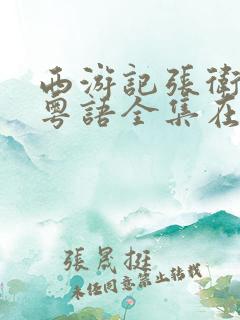 西游記張衛
粵語全集在
張晟挺
未任同意禁止转载